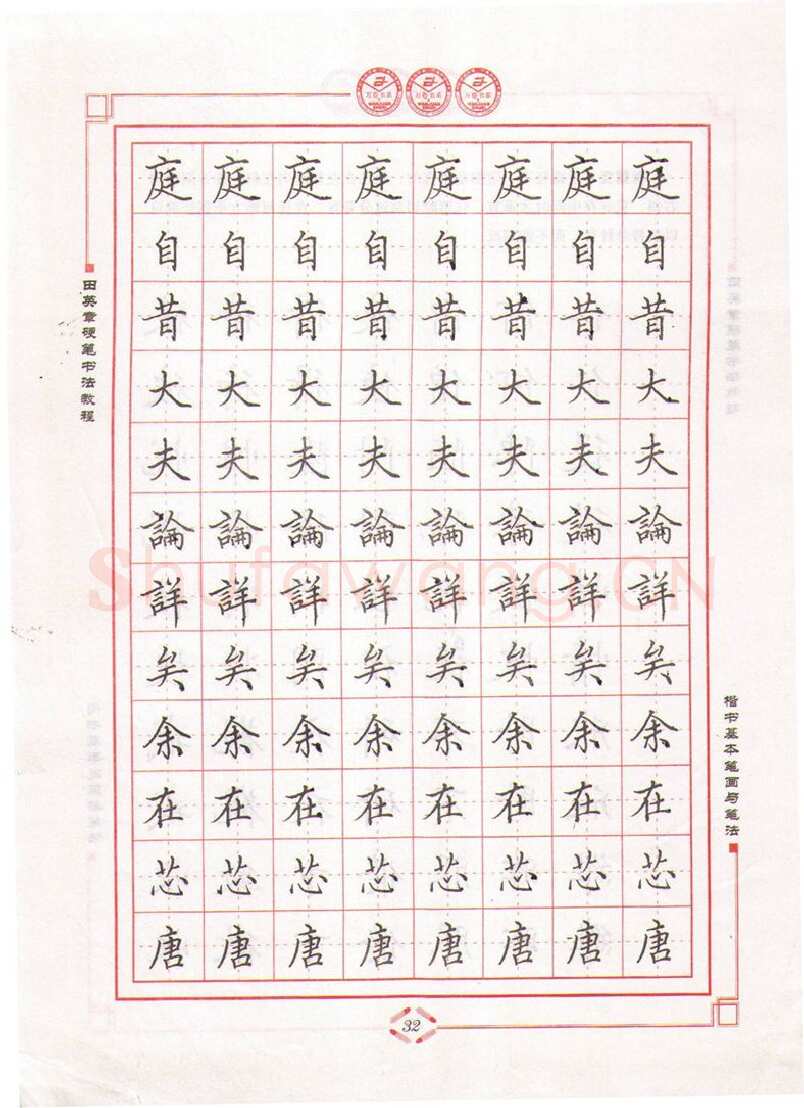 田英章硬笔书法教程
庭庭庭庭庭庭庭庭
自自自自自自自自
昔昔昔昔昔昔昔昔
大大大大大大大大
夫夫夫夫夫夫夫夫
論論論論論論論論
shufawang.CN
詳詳詳詳詳詳詳詳
矣矣矣矣矣矣矣矣
余余余余余余余余
在在在在在在在在
芯芯芯芯芯芯芯芯
唐唐唐唐唐唐唐唐
楷书基本笔画与笔法
32